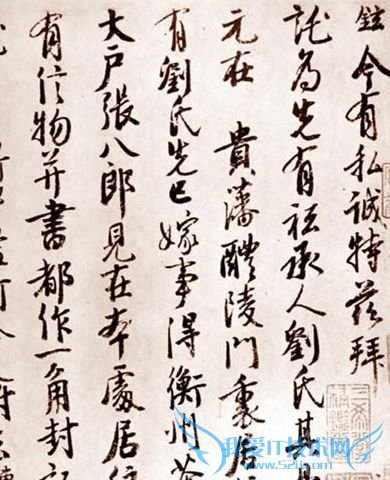 鉉今有私誠特茲拜
託為先有祗承人劉氏其
元在 貴藩醴陵門裏居
有劉氏先已嫁事得衡州茶
大戶張八郎見在本處居住
有信物并書都作一角封
我爱IT技术网